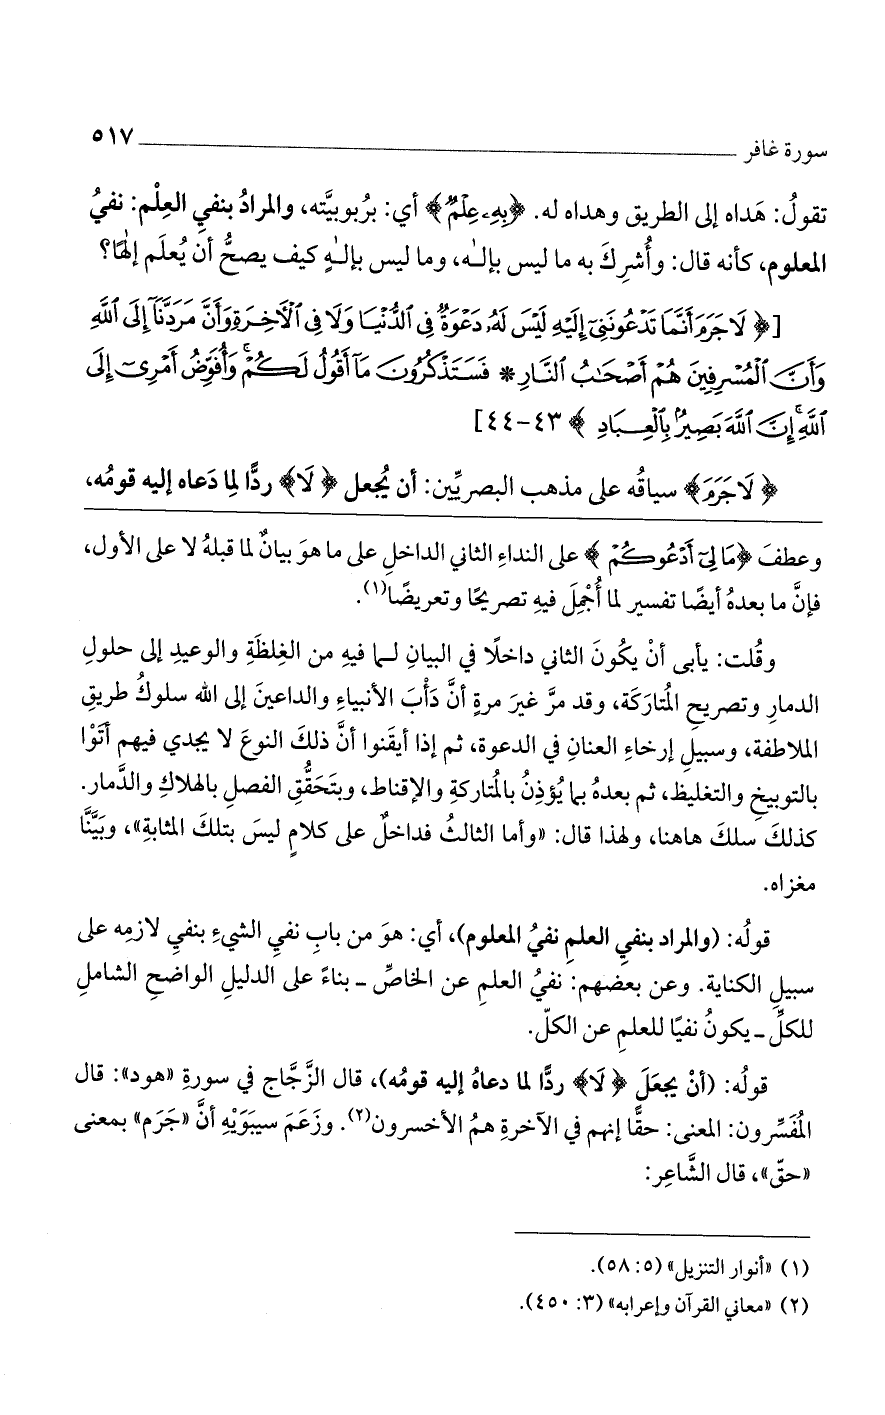 سورة غافر ٥١٧
تقولُ: هَداه إلى الطريق وهداه له. ﴿بِهِۦ عِلْمٌ﴾ أي: بربُوبيَّته، والمرادُ بنفيِ العِلْم: نفيُ
المعلوم، كأنه قال: وأُشرِكَ به ما ليس بإلٰه، وما ليس بإلٰهٍ كيف يصحُّ أن يُعلَم إلٰهًا؟
[﴿لَا جَرَمَ أَنَّمَا تَدْعُونَنِىٓ إِلَيْهِ لَيْسَ لَهُۥ دَعْوَةٌ فِى ٱلدُّنْيَا وَلَا فِى ٱلْأَخِرَةِ وَأَنَّ مَرَدَّنَآ إِلَى ٱللَّهِ
وَأَنَّ ٱلْمُسْرِفِينَ هُمْ أَصْحَٰبُ ٱلنَّارِ * فَسَتَذْكُرُونَ مَآ أَقُولُ لَكُمْ ۚ وَأُفَوِّضُ أَمْرِىٓ إِلَى
ٱللَّهِ ۚ إِنَّ ٱللَّهَ بَصِيرٌۢ بِٱلْعِبَادِ﴾ ٤٣-٤٤]
﴿لَا جَرَمَ﴾ سياقُه على مذهب البصريِّين: أن يُجعل ﴿لَا﴾ ردًّا لِما دَعاه إليه قومُه،
وعطفَ ﴿مَا لِىٓ أَدْعُوكُمْ﴾ على النداءِ الثاني الداخلِ على ما هوَ بيانٌ لما قبلهُ لا على الأول،
فإنَّ ما بعدهُ أيضًا تفسير لما أُجْمِلَ فيهِ تصريحًا وتعريضًا(١).
وقُلت: يأبى أنْ يكُونَ الثاني داخلًا في البيانِ لـما فيهِ من الغِلظَةِ والوعيدِ إلى حلولِ
الدمارِ وتصريحِ المُتارَكَة، وقد مرَّ غيرَ مرةٍ أنَّ دَأْبَ الأنبياءِ والداعينَ إلى الله سلوكُ طريقِ
الملاطفة، وسبيلِ إرخاءِ العنانِ في الدعوة، ثم إذا أيقَنوا أنَّ ذلكَ النوعَ لا يجدي فيهم أتَوْا
بالتوبيخِ والتغليظ، ثم بعدهُ بما يُؤذِنُ بالمُتاركةِ والإقناط، وبتَحَقُّقِ الفصلِ بالهلاكِ والدَّمار.
كذلكَ سلكَ هاهنا، ولهذا قال: «وأما الثالثُ فداخلٌ على كلامٍ ليسَ بتلكَ المثابةِ»، وبَيَّنَّا
مغزاه.
قولُه: (والمراد بنفيِ العلمِ نفيُ المعلوم)، أي: هوَ من بابِ نفيِ الشيءِ بنفيِ لازمِه على
سبيلِ الكناية. وعن بعضهم: نفيُ العلمِ عن الخاصِّ ـ بناءً على الدليلِ الواضحِ الشاملِ
للكلِّ ـ يكونُ نفيًا للعلمِ عن الكلّ.
قولُه: (أنْ يجعَلَ ﴿لَا﴾ ردًّا لما دعاهُ إليه قومُه)، قال الزَّجَّاج في سورةِ «هود»: قال
المُفَسِّرون: المعنى: حقًّا إنهم في الآخرةِ همُ الأخسرون(٢). وزَعَمَ سيبَوَيْهِ أنَّ «جَرَم» بمعنى
«حقّ»، قال الشَّاعِر:
(١) «أنوار التنزيل» (٥: ٥٨).
(٢) «معاني القرآن وإعرابه» (٣: ٤٥٠).